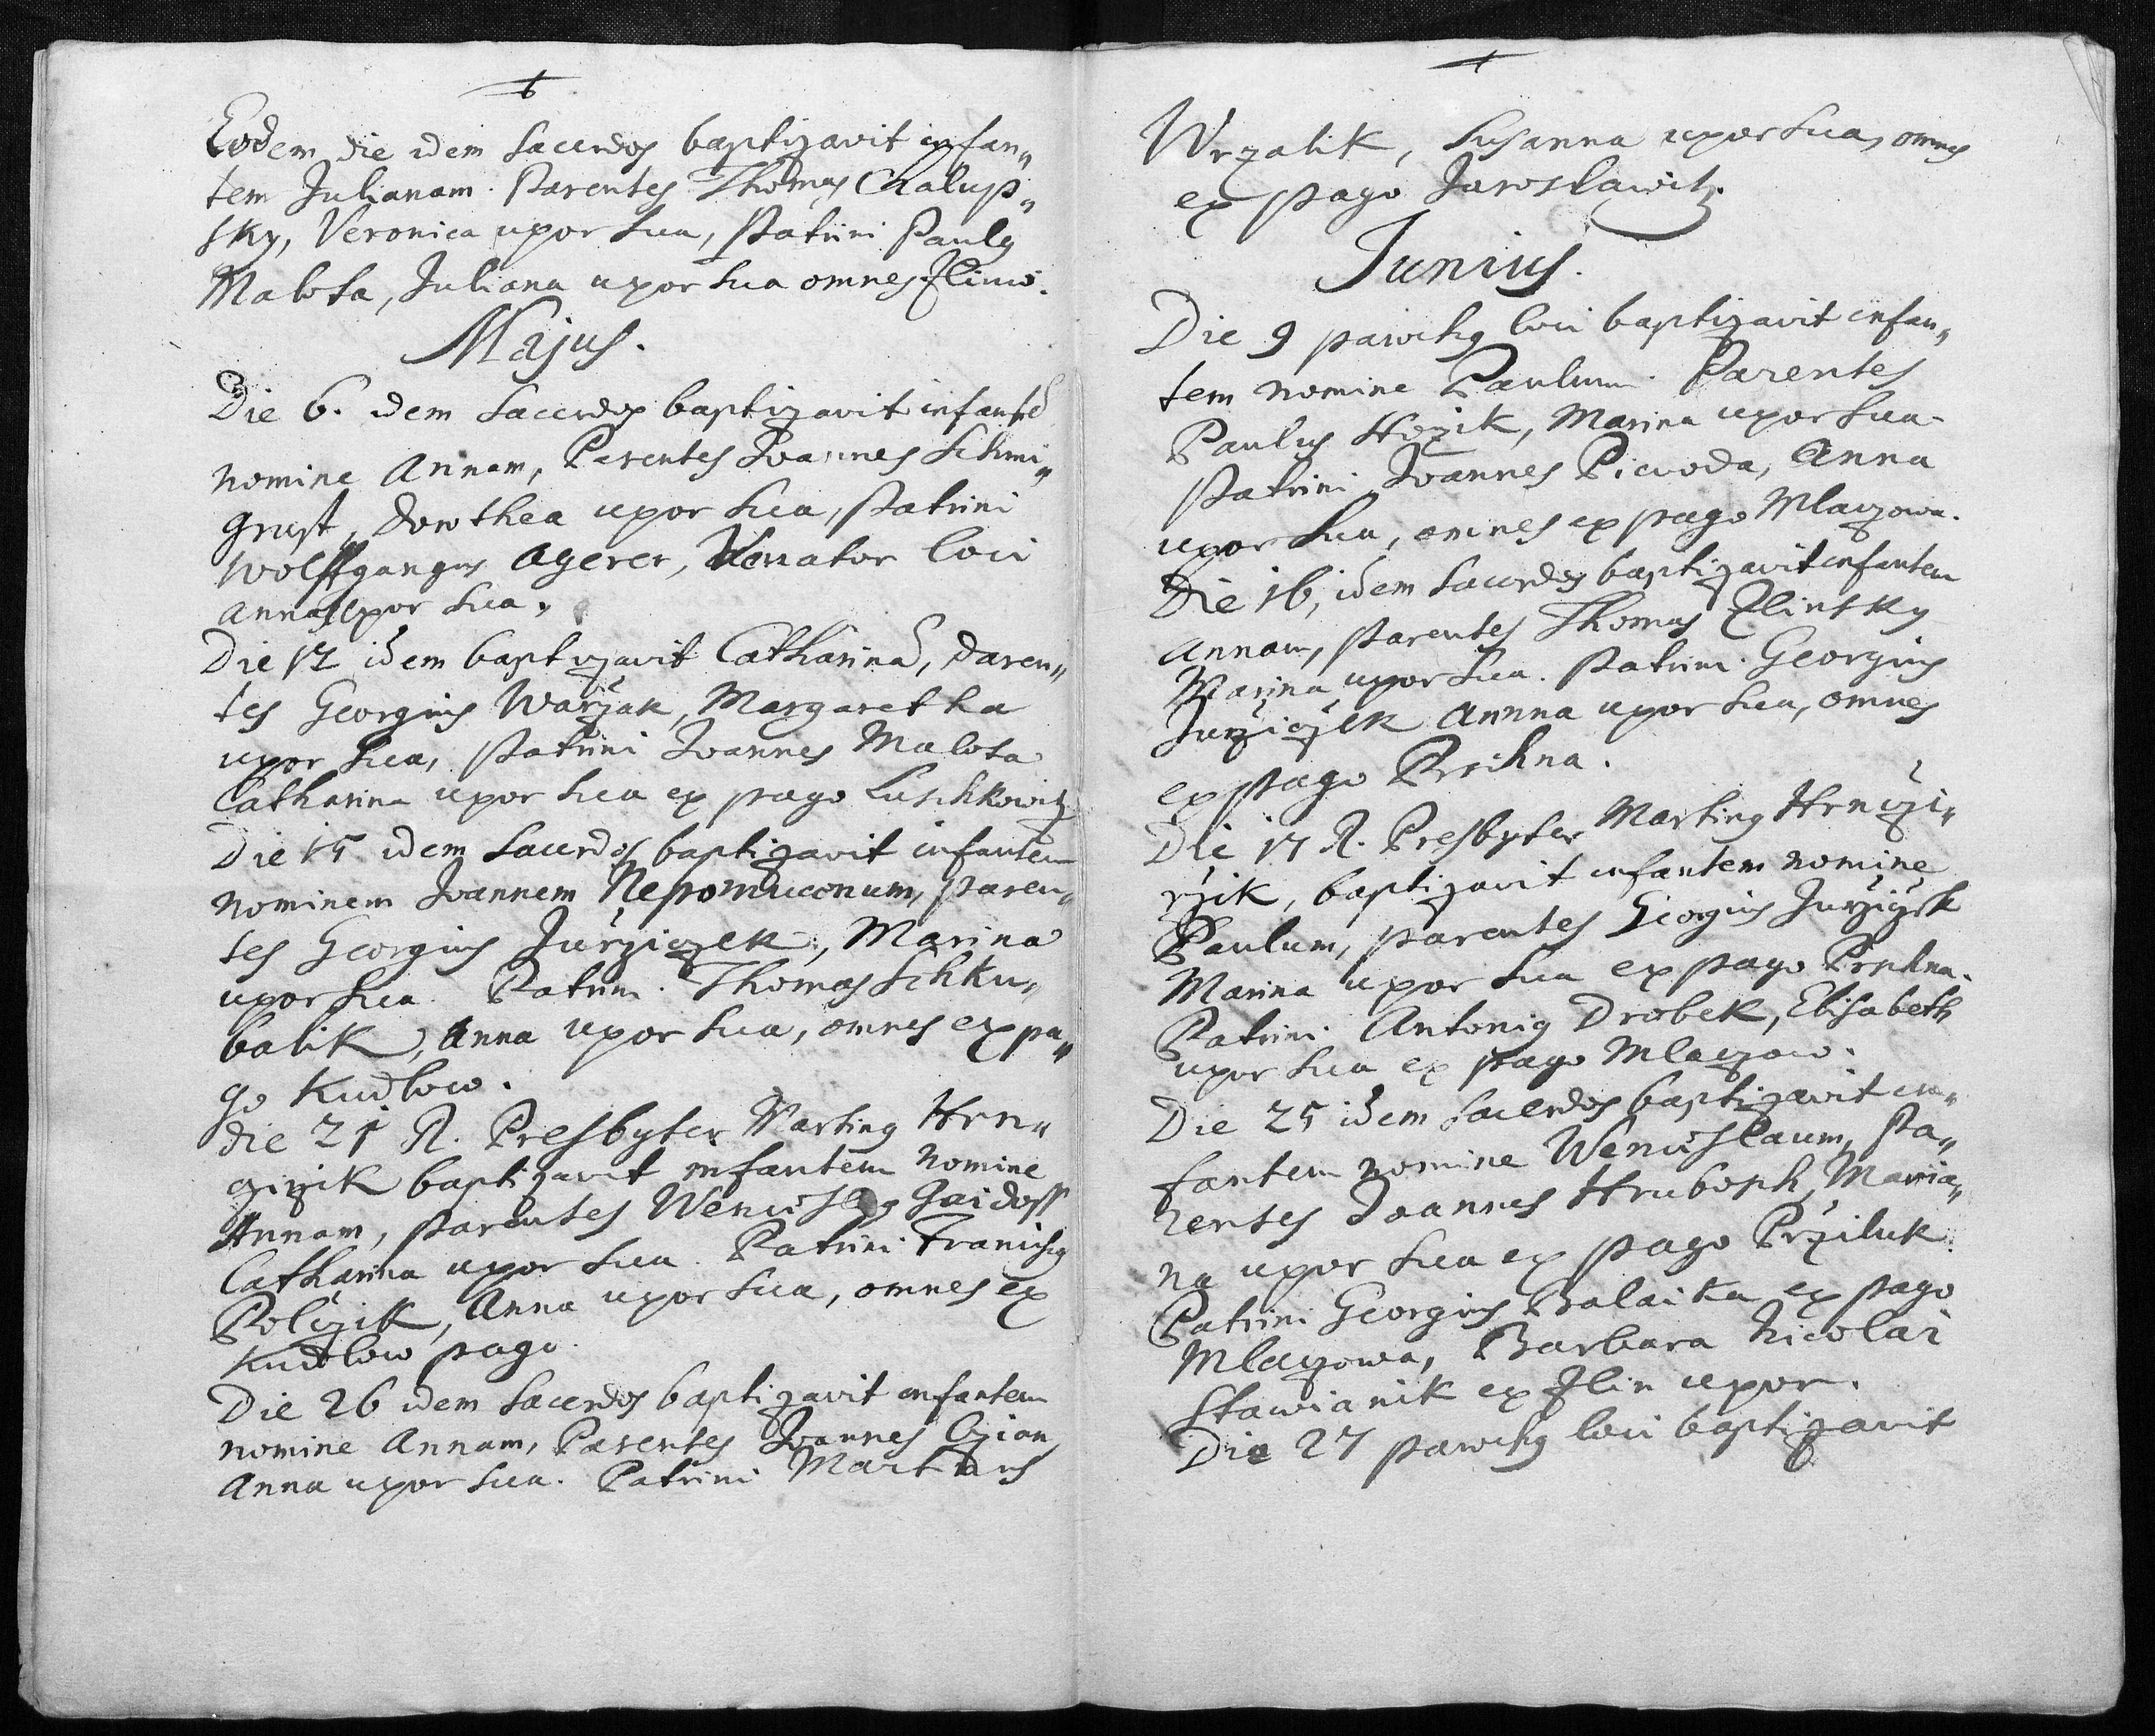 Eodem die idem Sacerdos baptizavit infan„
tem Julianam. Parentes Thomas Chalup„
sky, Veronica uxor sua, Patrini Paulg
Malota, Juliana uxor sua omnes Zlinẽ.
Majus.
Die 6. idem Sacerdos baptizavit infantẽ
nomine Annam, Parentes Joannes Schmi„
grust, Dorothea uxor sua, Patrini
Wolffgangus Agerer, Venator loci
Anna uxor sua.
Die 12 idem baptizavit Catharinã, Paren„
tes Georgius Warżak, Margaretha
uxor sua, Patrini Joannes Malota
Catharina uxor sua ex pago Luschkowitz
Die 15 idem Sacerdos baptizavit infantem
nominem Joannem Nepomucenum, paren„
tes Georgius Jurziczek, Marina
uxor sua. Patrini. Thomas Schku„
balik, Anna uxor sua, omnes ex pa„
go Kudlow.
die 21 R. Presbyter Marting Hrn„
czirzik baptizavit infantem nomine
Annam, parentes Wencislag Gaidoss
Catharina uxor sua. Patrini Franciscg
Policzik, Anna uxor sua, omnes ex
Kudlow pago.
Die 26 idem Sacerdos baptizavit infantem
nomine Annam, Parentes Joannes Czian
Anna uxor sua. Patrini Martinus
Wrzalik, Susanna uxor sua, omnes
ex pago Jaroslawitz.
Junius.
Die 9 parochg loci baptizavit infan„
tem nomine Paulum. Parentes
Paulus Hozik, Marina uxor sua
Patrini Joannes Piewoda, Anna
uxor sua, omnes ex pago Mlaczowa.
Die 16, idem Sacerdos baptizavit infantem
Annam, Parentes Thomas Zlinsky
Marina uxor sua. Patrini. Georgius
Jurziczek Annna uxor sua, omnes
ex pago Prschna.
Die 17 R. Presbyter Marting Hrnczi„
rzik, baptizavit infantem nomine
Paulum, parentes Georgius Jurziczek
Marina uxor sua ex pago Prschna.
Patrini Antonig Drobek, Elisabeth
uxor sua ex pago Mlaczow.
Die 25 idem Sacerdos baptizavit in„
fantem nomine Wencislaum, Pa„
rentes Joannes Hruboph, Maria„
na uxor sua ex pago Prziluk
Patrini Georgius Balaika ex pago
Mlaczowa, Barbara Nicolai
Stawianik ex Zlin uxor.
Die 27 parochg loci baptizavit